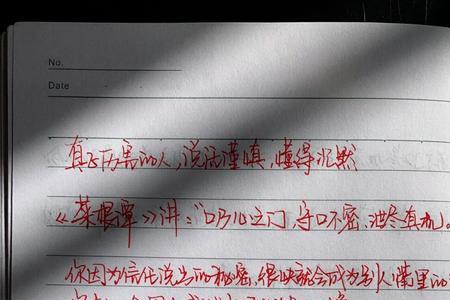 No.
Date
真正厉害的人,说话谨慎,懂得沉默
《菜根谭》讲:“口乃心之门,守口不密,泄尽真机”。
你因为信任说出的秘密,很快就会成为别人嘴里的